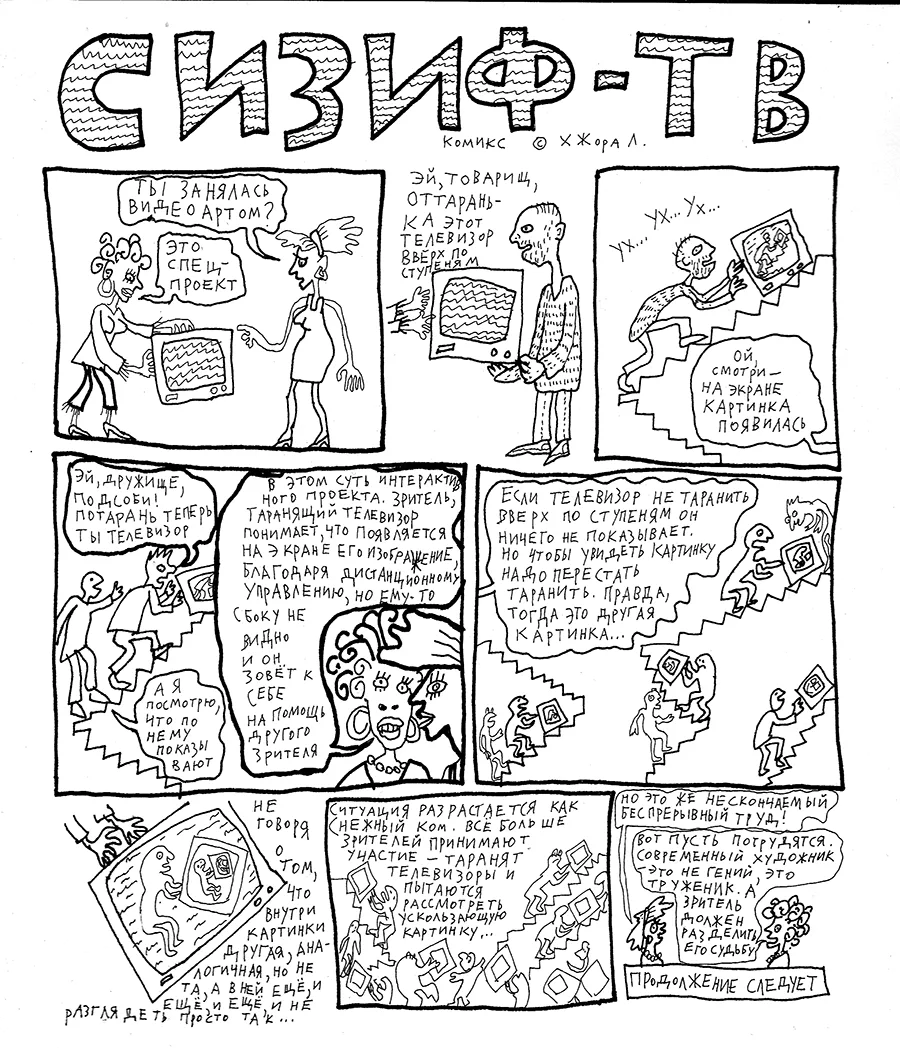 СИЗИФ-ТВ
КОМИКС © Х ЖОРА Л.
ТЫ ЗАНЯЛАСЬ
ВИДЕОАРТОМ?
ЭТО
СПЕЦ-
ПРОЕКТ
ЭЙ, ТОВАРИЩ,
ОТТАРАНЬ-
КА ЭТОТ
ТЕЛЕВИЗОР
ВВЕРХ ПО
СТУПЕНЯМ
УХ... УХ... УХ...
ОЙ,
СМОТРИ —
НА ЭКРАНЕ
КАРТИНКА
ПОЯВИЛАСЬ
ЭЙ, ДРУЖИЩЕ,
ПОДСОБИ!
ПОТАРАНЬ ТЕПЕРЬ
ТЫ ТЕЛЕВИЗОР
А Я
ПОСМОТРЮ,
ЧТО ПО
НЕМУ
ПОКАЗЫ
ВАЮТ
В ЭТОМ СУТЬ ИНТЕРАКТИВ
НОГО ПРОЕКТА. ЗРИТЕЛЬ,
ТАРАНЯЩИЙ ТЕЛЕВИЗОР
ПОНИМАЕТ, ЧТО ПОЯВЛЯЕТСЯ
НА ЭКРАНЕ ЕГО ИЗОБРАЖЕНИЕ,
БЛАГОДАРЯ ДИСТАНЦИОННОМУ
УПРАВЛЕНИЮ, НО ЕМУ-ТО
СБОКУ НЕ
ВИДНО
И ОН
ЗОВЁТ К
СЕБЕ
НА ПОМОЩЬ
ДРУГОГО
ЗРИТЕЛЯ
ЕСЛИ ТЕЛЕВИЗОР НЕ ТАРАНИТЬ
ВВЕРХ ПО СТУПЕНЯМ ОН
НИЧЕГО НЕ ПОКАЗЫВАЕТ.
НО ЧТОБЫ УВИДЕТЬ КАРТИНКУ
НАДО ПЕРЕСТАТЬ
ТАРАНИТЬ. ПРАВДА,
ТОГДА ЭТО ДРУГАЯ
КАРТИНКА...
НЕ
ГОВОРЯ
О
ТОМ,
ЧТО
ВНУТРИ
КАРТИНКИ
ДРУГАЯ, АНА-
ЛОГИЧНАЯ, НО НЕ
ТА, А В НЕЙ ЕЩЁ, И
ЕЩЁ, И ЕЩЁ, И НЕ
РАЗГЛЯДЕТЬ ПРОСТО ТАК...
СИТУАЦИЯ РАЗРАСТАЕТСЯ КАК
НЕЖНЫЙ КОМ. ВСЁ БОЛЬШЕ
ЗРИТЕЛЕЙ ПРИНИМАЮТ
УЧАСТИЕ — ТАРАНЯТ
ТЕЛЕВИЗОРЫ И
ПЫТАЮТСЯ
РАССМОТРЕТЬ
УСКОЛЬЗАЮЩУЮ
КАРТИНКУ...
НО ЭТО ЖЕ НЕСКОНЧАЕМЫЙ
БЕСПРЕРЫВНЫЙ ТРУД!
ВОТ ПУСТЬ ПОТРУДЯТСЯ.
СОВРЕМЕННЫЙ ХУДОЖНИК
ЭТО НЕ ГЕНИЙ, ЭТО
ТРУЖЕНИК. А
ЗРИТЕЛЬ
ДОЛЖЕН
РАЗДЕЛИТЬ
ЕГО СУДЬБУ
ПРОДОЛЖЕНИЕ СЛЕДУЕТ